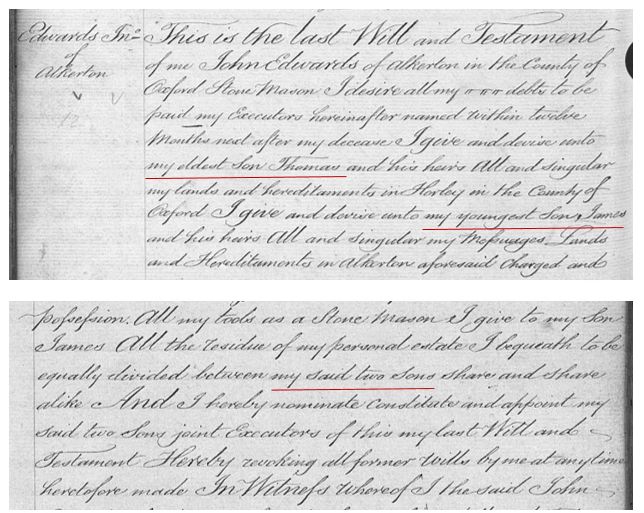 Edwards Jno
of
Alkerton
This is the last Will and Testament
of me John Edwards of Alkerton in the County of
Oxford Stone Mason I desire all my debts to be
paid my Executors hereinafter named within twelve
Months next after my decease I give and devise unto
my eldest Son Thomas and his heirs All and singular
my lands and hereditaments in Horley in the County of
Oxford I give and devise unto my youngest Son James
and his heirs All and singular my Messuages Lands
and Hereditaments in Alkerton aforesaid Charged and
possession. All my tools as a Stone Mason I give to my Son
James All the residue of my personal estate I bequeath to be
equally divided between my said two Sons share and share
alike And I hereby nominate constitute and appoint my
said two Sons joint Executors of this my last Will and
Testament Hereby revoking all former Wills by me at any time
heretofore made In Witness whereof I the said John